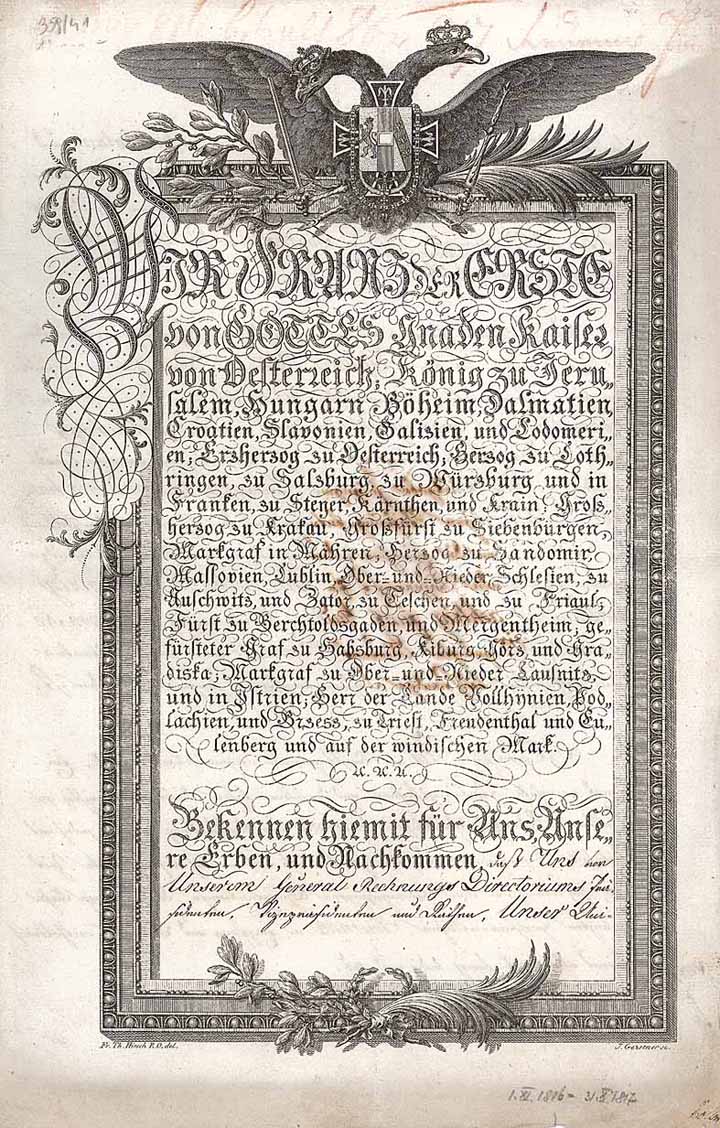 399/41
WIR FRANZ DER ERSTE
von GOTTES Gnaden Kaiser
von Oesterreich; König zu Jeru„
salem, Hungarn Böheim, Dalmatien,
Croatien, Slavonien, Galizien, und Lodomeri„
en; Erzherzog zu Oesterreich; Herzog zu Loth„
ringen, zu Salzburg, zu Würzburg und in
Franken, zu Steyer, Kärnthen, und Krain; Groß„
herzog zu Krakau; Großfürst zu Siebenbürgen,
Markgraf in Mähren; Herzog zu Sandomir,
Massovien, Lublin, Ober- und Nieder Schlesien, zu
Auschwitz, und Zator, zu Teschen, und zu Friaul;
Fürst zu Berchtoldsgaden und Mergentheim; ge„
fürsteter Graf zu Habsburg, Kiburg, Görz und Gra„
diska; Markgraf zu Ober- und Nieder Lausnitz,
und in Istrien; Herr der Lande Vollhynien, Pod„
lachien, und Brzesz, zu Triest, Freudenthal und Eu„
lenberg und auf der windischen Mark.
&c. &c. &c.
Bekennen hiemit für Uns, Unse„
re Erben, und Nachkommen, daß Uns von
Unserem General Rechnungs Directoriums Prä-
sidenten, Vizepräsidenten und Räthen, Unser
Fr. Th. Hirsch R.O. del.
J. Gerstner sc.
1.XI.1816 = 31.X.1817